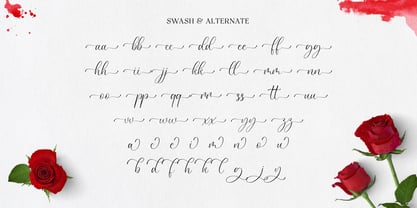 SWASH & ALTERNATE
aa bb cc dd ee ff gg
hh ii jj kk ll mm nn
oo pp qq rr ss tt uu
vv ww xx yy zz
a c e m n o u
b d f h k l g j y